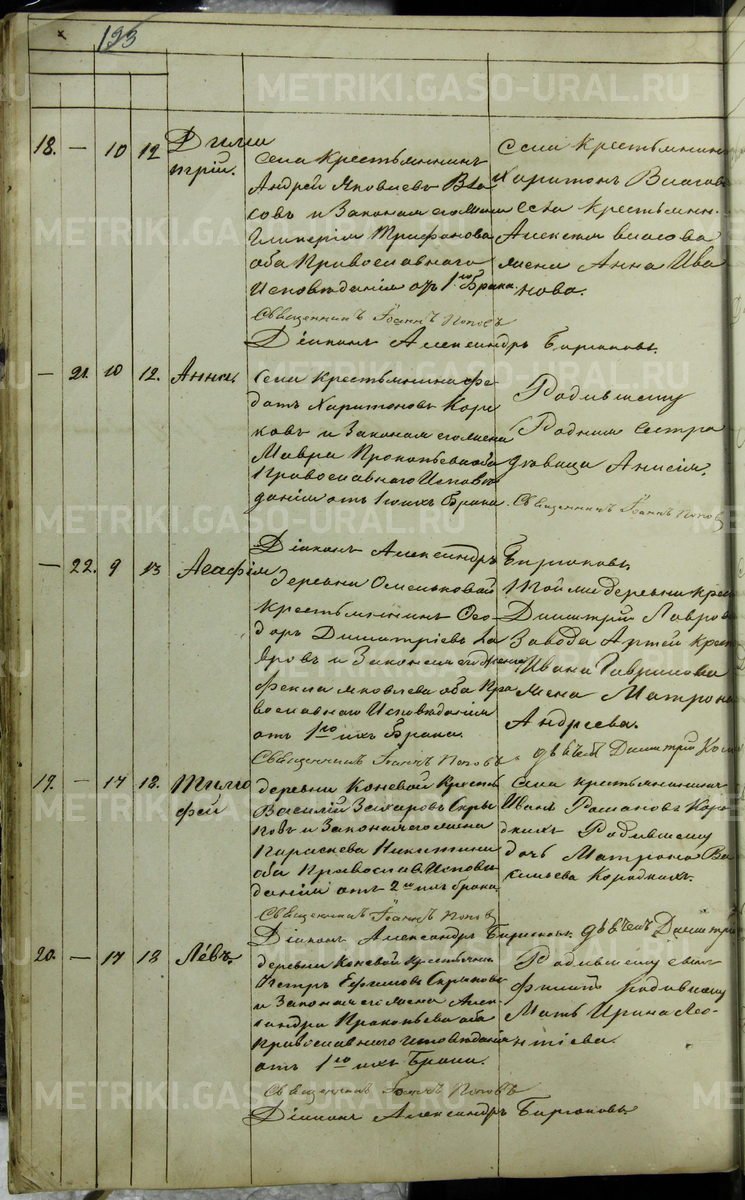 123
18. — 10 12 Дими
трiй.
Села Крестьянинъ
Андрей Яковлевъ Вла
совъ и Законная его жена
Гликерiя Трифонова
оба Православнаго
Исповѣданiя отъ 1го Брака
Села Крестьянинъ
Харитонъ Власовъ
села Крестьянин
Алексѣя Власова
жена Анна Ива
нова.
Священникъ Iоаннъ Поповъ
Дiаконъ Александръ Бирюковъ.
— 21. 10 12. Анна.
Села Крестьянинъ Фе
дотъ Харитоновъ
и Законная его жена
Мавра Прокопьева оба
Православнаго Исповѣ
данiя отъ 1го ихъ Брака.
Родившему
Родная Сестра
дѣвица Анисiя.
Священникъ Iоаннъ Поповъ
Дiаконъ Александръ Бирюковъ
— 22. 9 13 Агафiя
Деревни
Крестьянинъ Ѳео
доръ Димитрiевъ Ла
вровъ и Законная его Жена
Фекла Яковлева оба Пра
вославнаго Исповѣданiя
отъ 1го ихъ Брака.
Той же деревни крес
Димитрiй Лавровъ
Завода Артей Крест
Ивана Гаврилова
жена Матрона
Андреева.
Священникъ Iоаннъ Поповъ. Димитрiй
19. — 17 18. Тимо
фей
деревни Коневой Крестья
Василiй Захаровъ Скры
ковъ и Законная его жена
Параскева Никитина
оба Православ. Исповѣ
данiя отъ 2го ихъ брака
Села крестьянинъ
Иванъ Романовъ Коро
дкихъ Родившему
дочь Матрона Ва
сильева Кородкихъ.
Священникъ Iоаннъ Поповъ
Дiаконъ Александръ Бирюковъ. Димитрiй
20. — 17 18 Левъ.
деревни Коневой Крестьянинъ
Петръ Ефимовъ
и Законная его жена Алек
сандра Прокопьева оба
Православнаго исповѣданiя
отъ 1го ихъ Брака.
Родившему сынъ
Филипъ родившему
Мать Ирина Лео
нтiева.
Священникъ Iоаннъ Поповъ
Дiаконъ Александръ Бирюковъ
METRIKI.GASO-URAL.RU